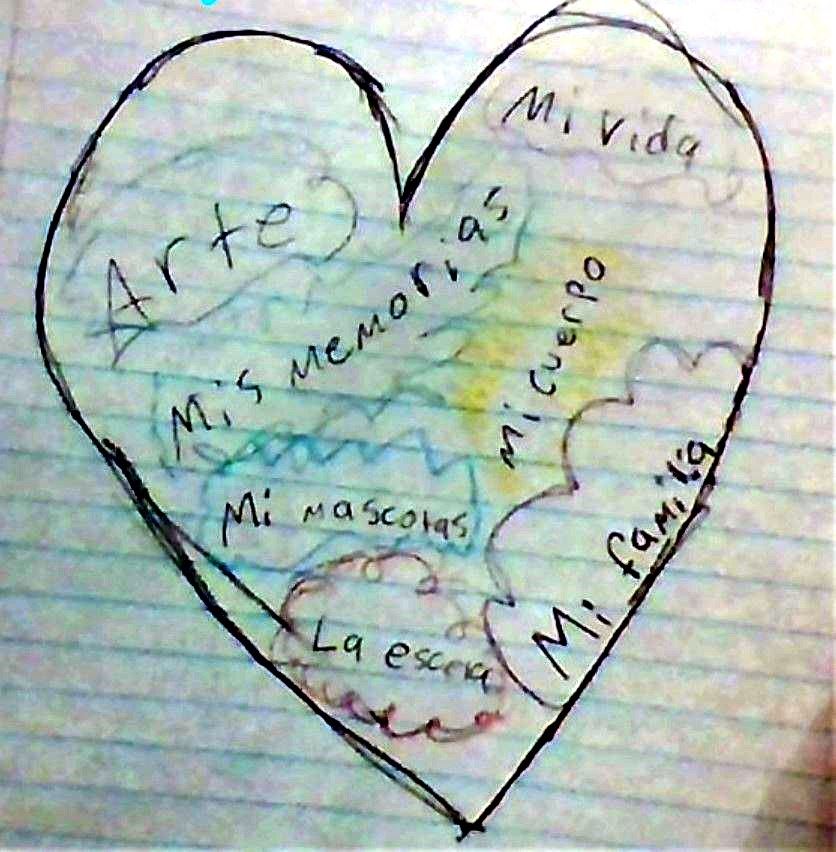 Mi vida
Arte
Mis memorias
Mi cuerpo
Mi mascotas
Mi familia
La